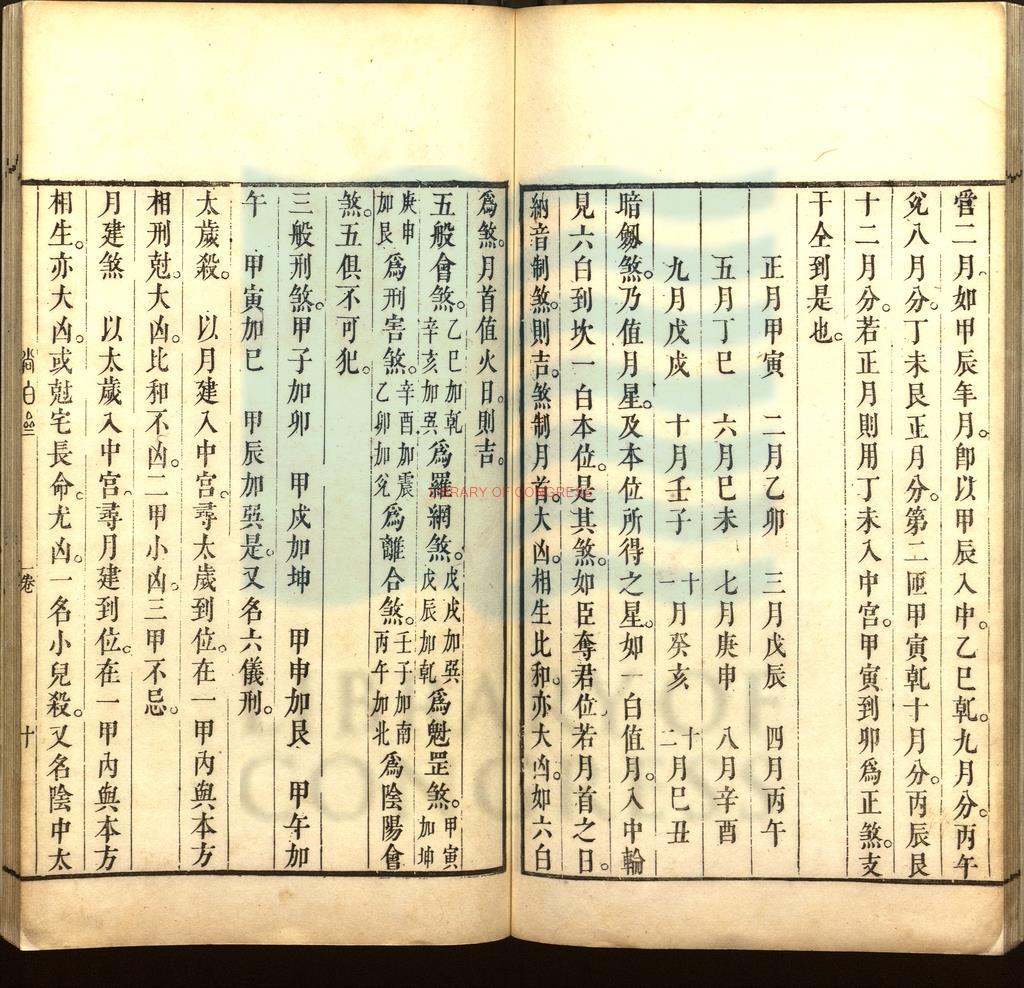 管二月如甲辰年月。卽以甲辰入中。乙巳乹。九月分。丙午
兊八月分。丁未艮正月分。第二匝甲寅乹十月分。丙辰艮
十二月分。若正月則用丁未入中宮。甲寅到卯爲正煞。支
干仝到是也。
正月甲寅 二月乙卯 三月戊辰 四月丙午
五月丁巳 六月巳未 七月庚申 八月辛酉
九月戊戌 十月壬子 十一月癸亥 十二月巳丑
暗劔煞。乃值月星。及本位所得之星。如一白值月。入中輪
見六白到坎一白本位。是其煞。如臣奪君位。若月首之日。
納音制煞。則吉。煞制月首。大凶。相生比和。亦大凶。如六白
爲煞。月首值火日。則吉。
五般會煞。乙巳加乾辛亥加巽爲羅網煞。戊戌加巽戊辰加乾爲魁罡煞。甲寅加坤
庚申加艮爲刑害煞。辛酉加震乙卯加兊爲離合煞。壬子加南丙午加北爲陰陽會
煞。五俱不可犯。
三般刑煞。甲子加卯 甲戌加坤 甲申加艮 甲午加
午 甲寅加巳 甲辰加巽是。又名六儀刑。
太歲殺。 以月建入中宮。尋太歲到位。在一甲內與本方
相刑尅。大凶。比和不凶。二甲小凶。三甲不忌。
月建煞 以太歲入中宮。尋月建到位。在一甲內與本方
相生。亦大凶。或尅宅長命。尤凶。一名小兒殺。又名陰中太
一卷
十
LIBRARY OF CONGRESS